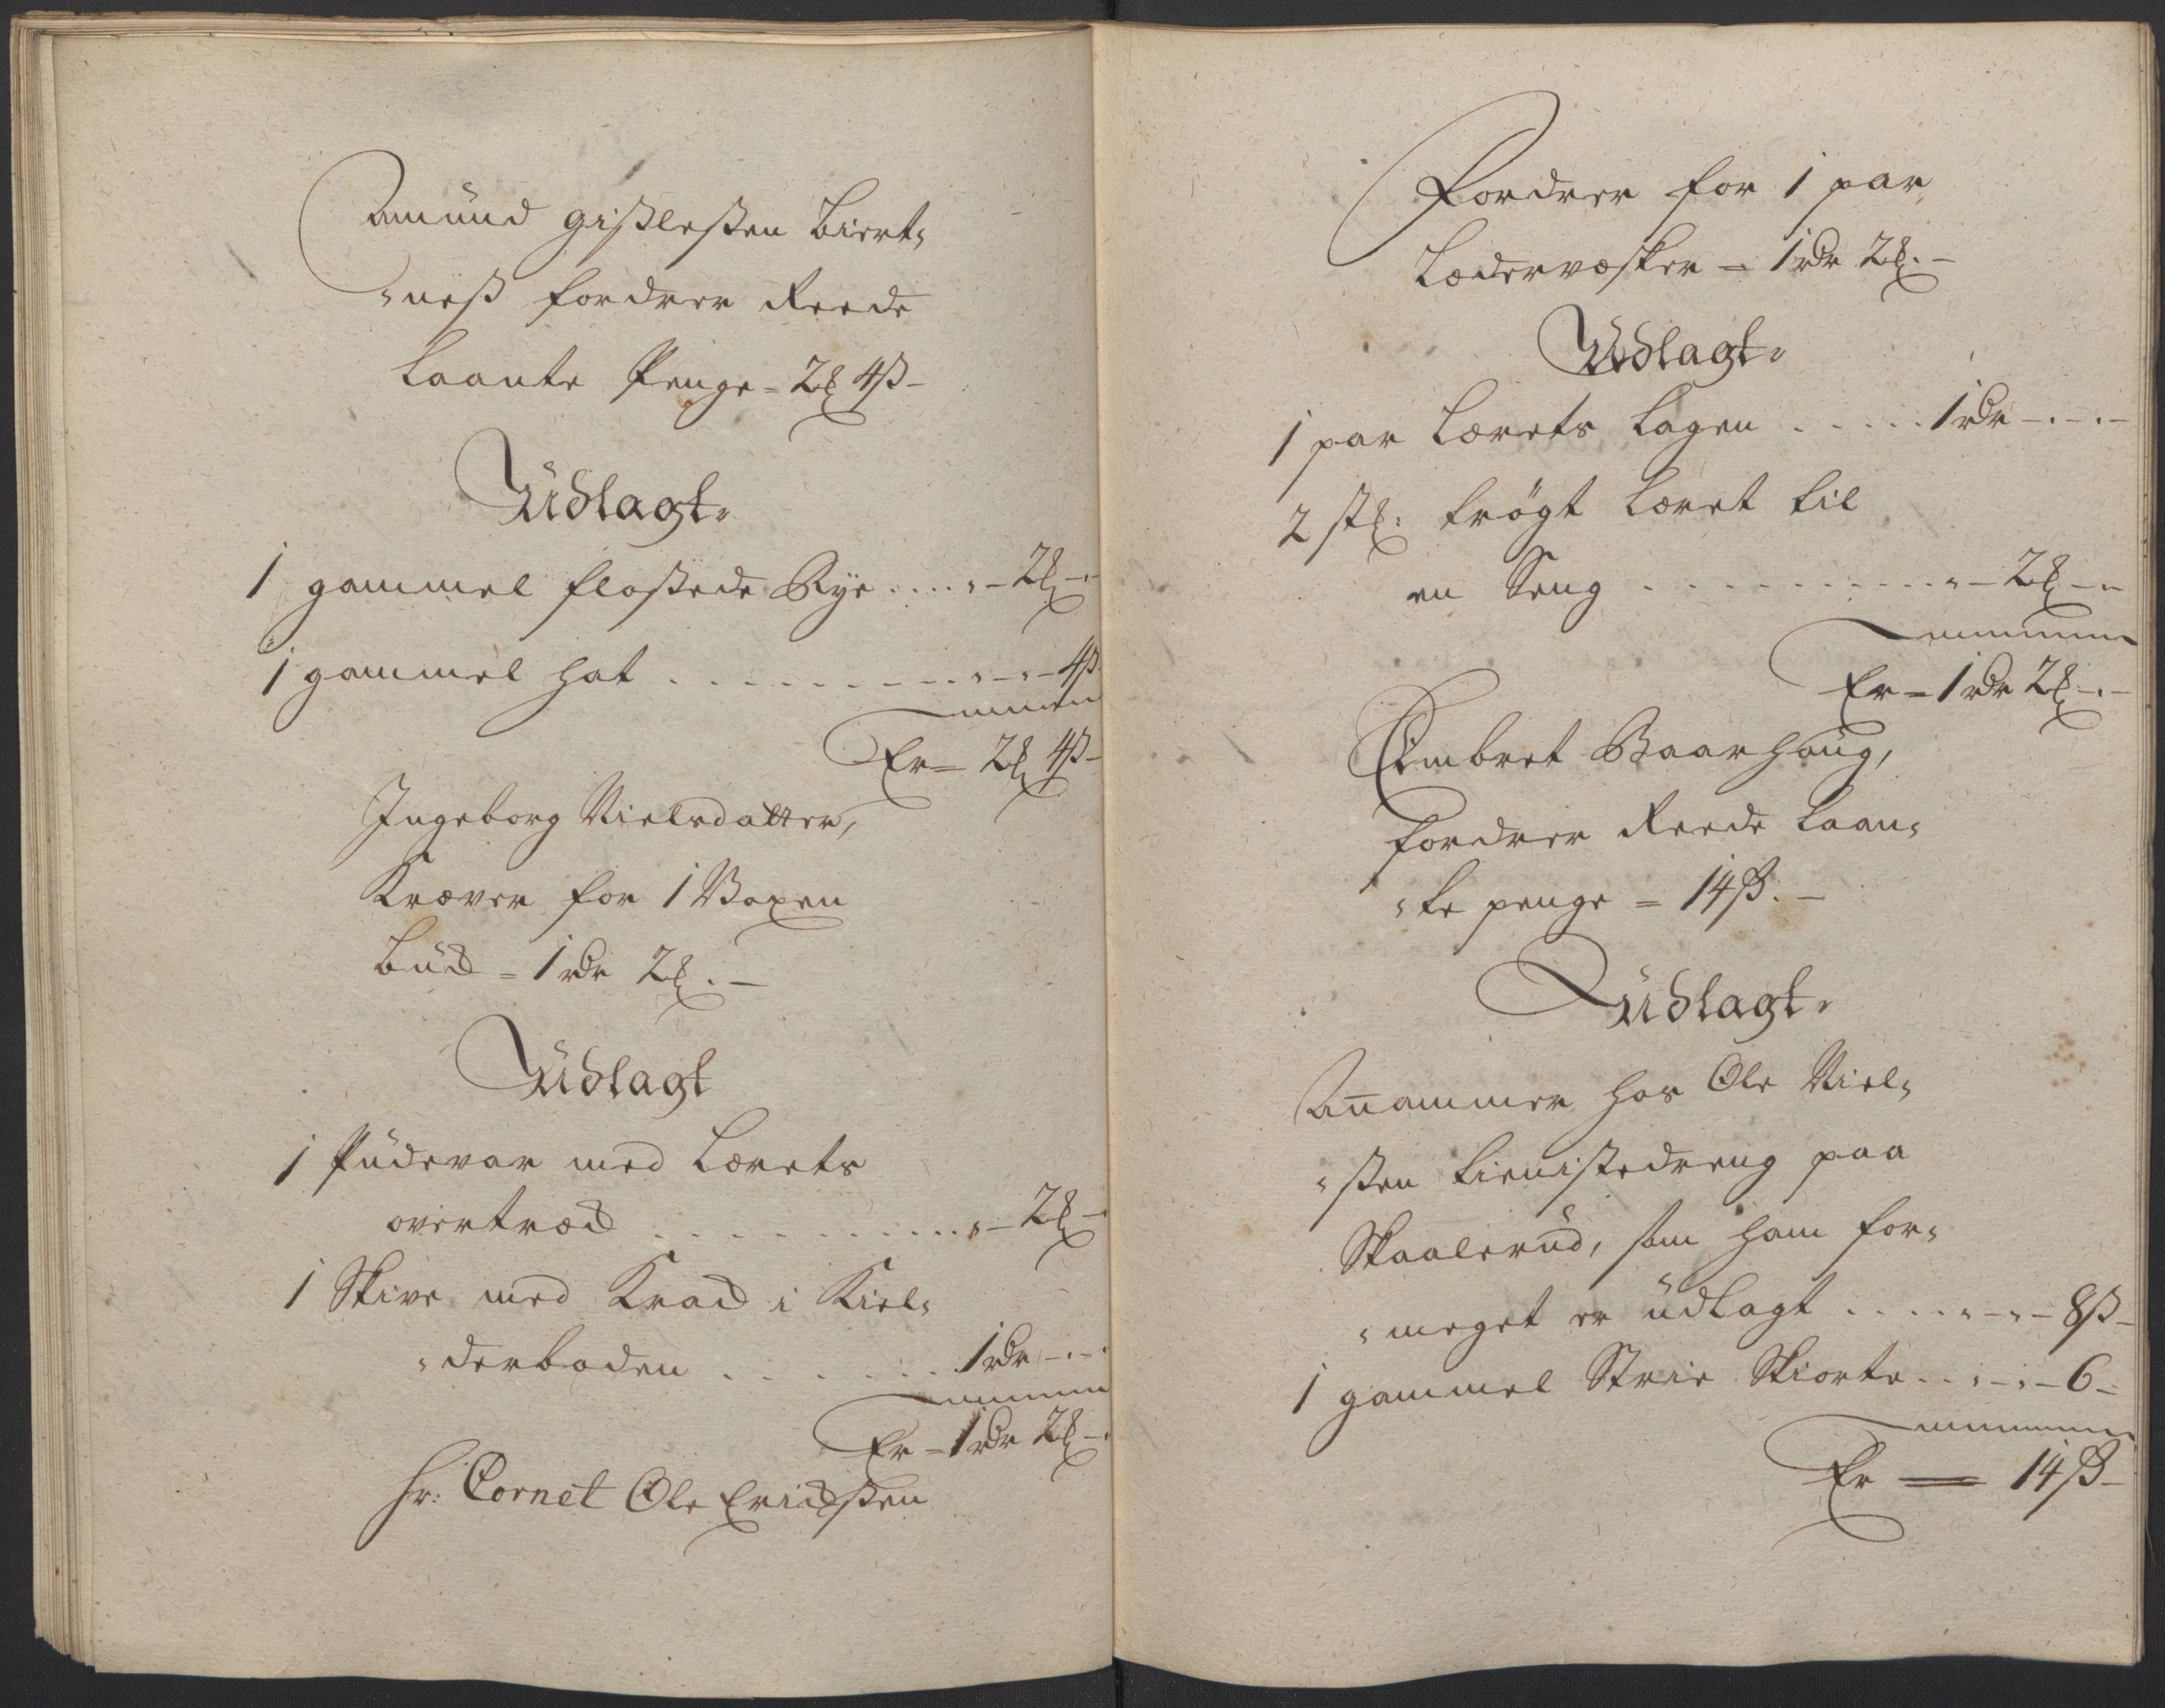 Amund Gißleßen Biert,
,neß fordrer Reede
Laante Penge = 2 ß 4 ß –
Udlagt.
1 gammel floßede Rye .... „ – 2 ß – „
1 gammel hat . . . . . . . . . „ – „ – 4 ß
Er = 2 ß 4 ß –
Ingeborg Nielsdatter,
Kræver for 1 Voxen
bud = 1 rdr 2 ß . –
Udlagt
1 Pudevar med Lærets
overtræd . . . . . . . . . „ – 2 ß –
1 Skive med Krad i Kiel,
,derboden . . . . . . 1 rdr – . – .
Er – 1 rdr 2 ß – .
Hr: Cornet Ole Ericksßen
Fordrer for 1 par
Lædervæsker = 1 rdr 2 ß . –
Udlagt.
1 par Lærets Lagen . . . . . 1 rdr – . – . –
2 st: trøgt Læret til
en Seng . . . . . . . . . . „ – 2 ß – „
Er = 1 rdr 2 ß – . –
Embret Baarhaug,
fordrer Reede Laan,
,te penge = 14 ß . –
Udlagt.
Annammer hos Ole Niel,
,ßen tienistedreng paa
Skaalerud, som ham for,
,meget er udlagt . . . . „ – „ – 8 ß –
1 gammel Strie Skiorte . . „ – „ – 6 –
Er = 14 ß –